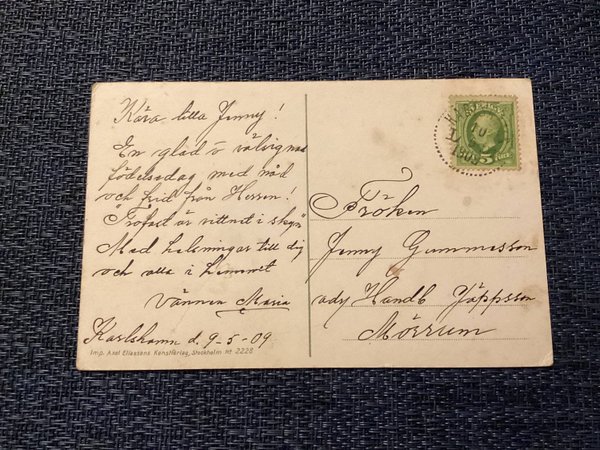 Kära lilla Jenny!
En glad o välsignad
födelsedag med nåd
och frid från Herren!
"Trofast är vittnet i skyn"
Med helsningar till dig
och alla i hemmet
vännen Maria
Karlshamn d. 9-5-09
Imp. Axel Eliassons Konstförlag, Stockholm Nr 2228
SVERIGE
5
Fröken
Jenny Gummesson
adr Handl Jäppsson
Mörrum